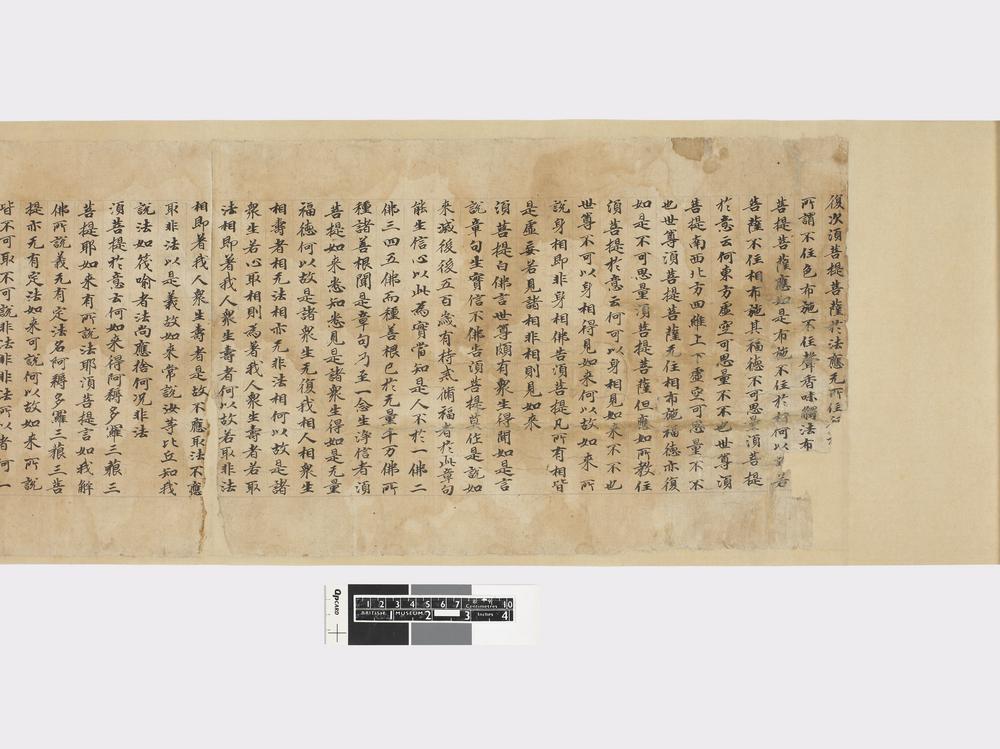 復次須菩提菩薩於法應无所住
所謂不住色布施不住聲香味觸法布
菩提菩薩應如是布施不住於相何以
菩薩不住相布施其福德不可思量須菩提
於意云何東方虛空可思量不不也世尊須
菩提南西北方四維上下虛空可思量不不
也世尊須菩提菩薩无住相布施福德亦復
如是不可思量須菩提菩薩但應如所教住
須菩提於意云何可以身相見如來不不也
世尊不可以身相得見如來何以故如來所
說身相即非身相佛告須菩提凡所有相皆
是虛妄若見諸相非相則見如來
須菩提白佛言世尊頗有衆生得聞如是言
說章句生實信不佛告須菩提莫作是說如
來滅後後五百歲有持戒脩福者於此章句
能生信心以此為實當知是人不於一佛二
佛三四五佛而種善根已於无量千万佛所
種諸善根聞是章句乃至一念生淨信者須
菩提如來悉知悉見是諸衆生得如是无量
福德何以故是諸衆生无復我相人相衆生
相壽者相无法相亦无非法相何以故是諸
衆生若心取相則為著我人衆生壽者若取
法相即著我人衆生壽者何以故若取非法
相即著我人衆生壽者是故不應取法不應
取非法以是義故如來常說汝等比丘知我
說法如筏喻者法尚應捨何況非法
須菩提於意云何如來得阿耨多羅三藐三
菩提耶如來有所說法耶須菩提言如我解
佛所說義无有定法名阿耨多羅三藐三菩
提亦无有定法如來可說何以故如來所說
皆不可取不可說非法非非法所以者何一
British Museum
Centimetres
Inches
1 2 3 4 5 6 7 10
1 2 3 4
QPCARD